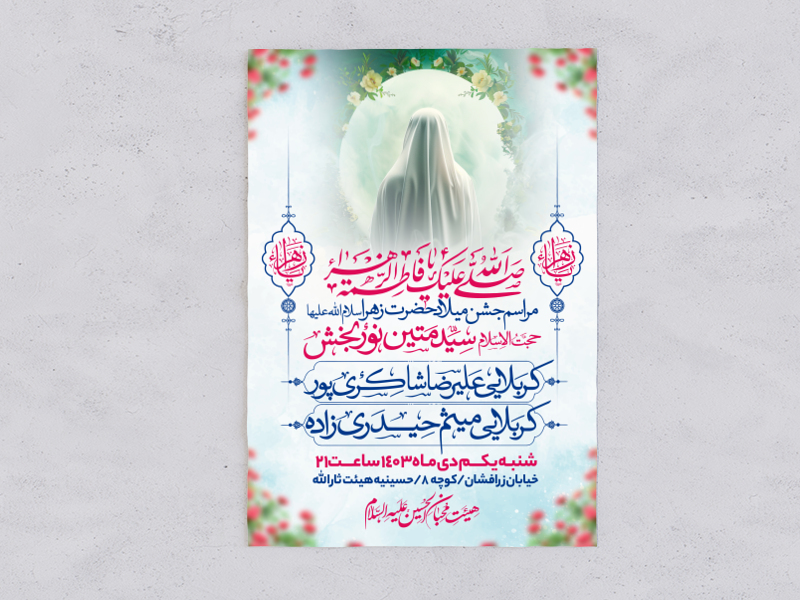 صلی الله علیک یا فاطمة الزهراء
یا زهراء
یا زهراء
مراسم جشن میلاد حضرت زهرا سلام الله علیها
حجت الاسلام سید متین نوربخش
کربلایی علیرضا شاکری پور
کربلایی میثم حیدری زاده
شنبه یکم دی ماه ۱۴۰۳ ساعت ۲۱
خیابان زرافشان / کوچه ۸ / حسینیه هیئت ثارالله
هیئت محبان الحسین علیه السلام